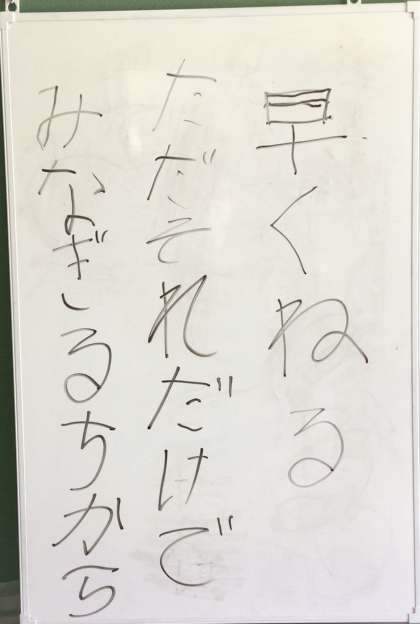 早くねる
ただそれだけで
みなぎるちから